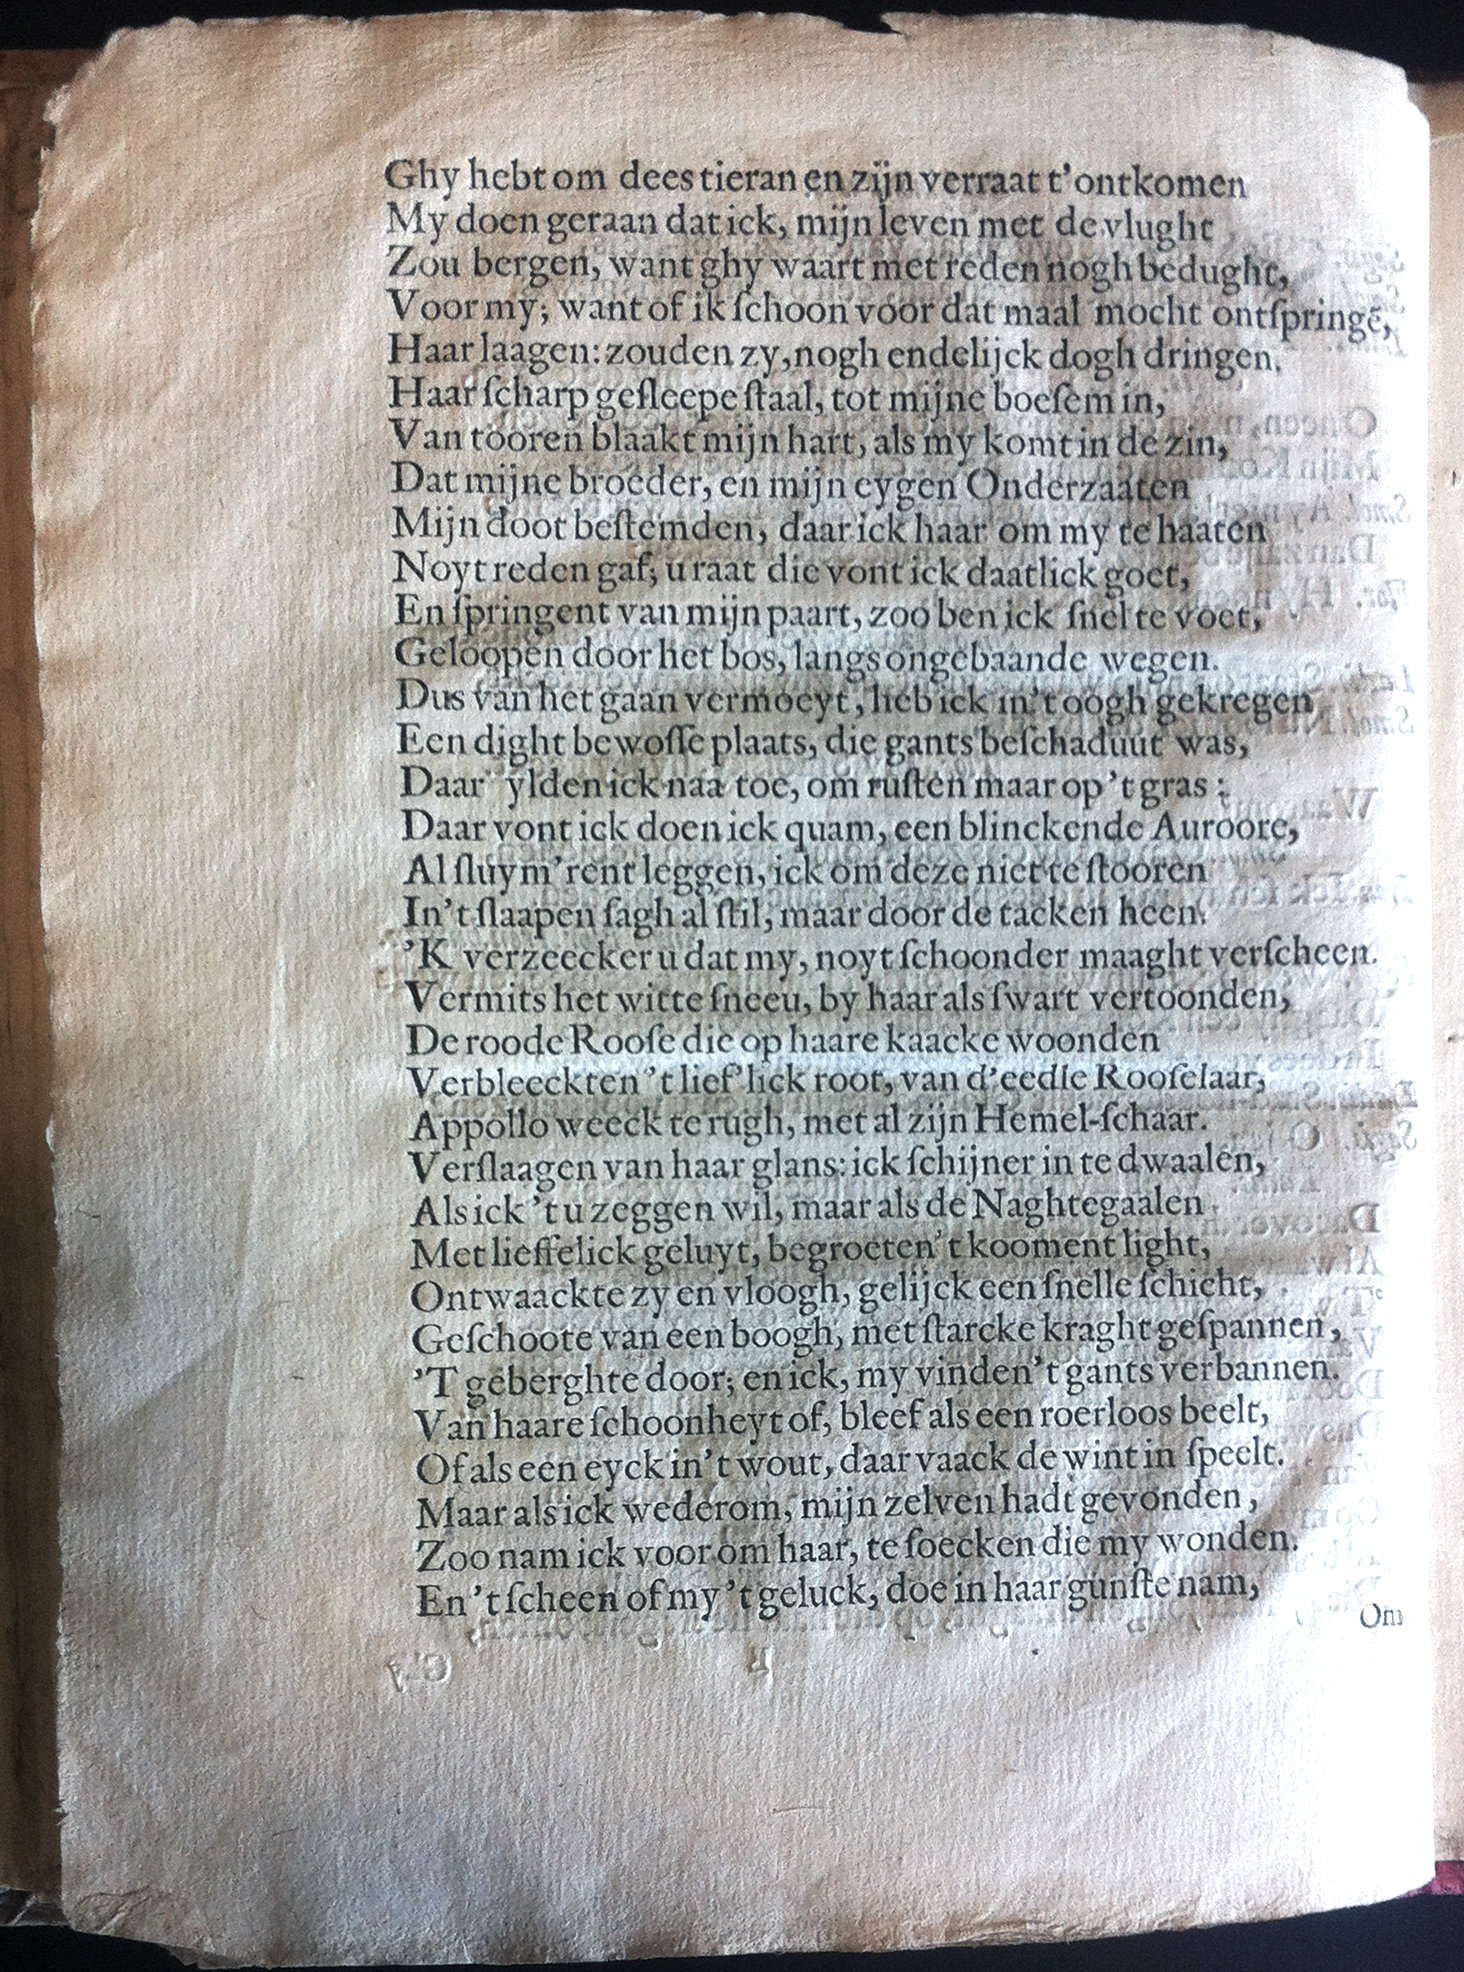 Ghy hebt om dees tieran en zijn verraat t'ontkomen
My doen geraan dat ick, mijn leven met de vlught
Zou bergen, want ghy waart met reden nogh bedught,
Voor my; want of ik ſchoon voor dat maal mocht ontſpringē,
Haar laagen: zouden zy, nogh endelijck dogh dringen.
Haar ſcharp geſleepe ſtaal, tot mijne boeſem in,
Van tooren blaakt mijn hart, als my komt in de zin,
Dat mijne broeder, en mijn eygen Onderzaaten
Mijn doot beſtemden, daar ick haar om my te haaten
Noyt reden gaf; u raat die vont ick daatlick goet,
En ſpringent van mijn paart, zoo ben ick ſnel te voet,
Geloopen door het bos, langs ongebaande wegen.
Dus van het gaan vermoeyt, heb ick in't oogh gekregen
Een dight bewoſſe plaats, die gants beſchaduut was,
Daar ylden ick naa toe, om ruſten maar op 't gras:
Daar vont ick doen ick quam, een blinckende Auroore,
Al ſluym'rent leggen, ick om deze niet te ſtooren
In't ſlaapen ſagh al ſtil, maar door de tacken heen.
'K verzeecker u dat my, noyt ſchoonder maaght verſcheen.
Vermits het witte ſneeu, by haar als ſwart vertoonden,
De roode Rooſe die op haare kaacke woonden
Verbleeckten 't lief'lick root, van d'eedle Rooſelaar,
Appollo weeck te rugh, met al zijn Hemel-ſchaar.
Verſlaagen van haar glans: ick ſchijner in te dwaalen,
Als ick 't u zeggen wil, maar als de Naghtegaalen
Met lieffelick geluyt, begroeten't kooment light,
Ontwaackte zy en vloogh, gelijck een ſnelle ſchicht,
Geſchoote van een boogh, met ſtarcke kraght geſpannen,
'T geberghte door; en ick, my vinden't gants verbannen.
Van haare ſchoonheyt of, bleef als een roerloos beelt,
Of als een eyck in't wout, daar vaack de wint in ſpeelt.
Maar als ick wederom, mijn zelven hadt gevonden,
Zoo nam ick voor om haar, te ſoecken die my wonden.
En 't ſcheen of my 't geluck, doe in haar gunſte nam,
Om